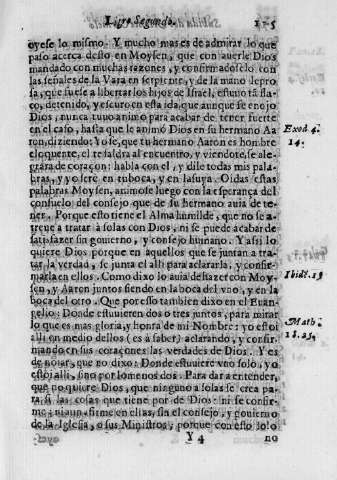 Libro Segundo.
175
oyese lo mismo. Y mucho mas es de admirar lo que
paso acerca desto en Moysen, que con auerle Dios
mandado con muchas razones, y confirmadoselo con
las señales de la Vara en serpiente, y de la mano lepro
sa, que fuese a libertar los hijos de Israel, estuuo tã fla-
co, detenido, y escuro en esta ida, que aunque se enojo
Dios, nunca tuuo animo para acabar de tener fuerte
en el caso, hasta que le animó Dios en su hermano Aa
ron, diziendo: Yo se, que tu hermano Aaron es hombre
eloquente, el te saldra al encuentro, y viendote, se ale-
grára de coraçon: habla con el, y dile todas mis pala-
bras, y yo sere en tu boca, y en la suya. Oidas estas
palabras Moysen, animose luego con la esperança del
consuelo del consejo que de su hermano auia de te-
ner. Porque esto tiene el Alma humilde, que no se a-
treue a tratar à solas con Dios, ni se puede acabar de
satisfazer sin gouierno, y consejo humano. Y assi lo
quiere Dios porque en aquellos que se juntan a tra-
tar la verdad, se junta el alli para aclararla, y confir-
marla en ellos. Como dixo lo auia de fazer con Moy
sen, y Aaron juntos siendo en la boca del vno, y en la
boca del otro. Que por esso tambien dixo en el Euan-
gelio: Donde estuuieren dos o tres juntos, para mirar
lo que es mas gloria, y honra de mi Nombre: yo estoi
alli en medio dellos (es à saber) aclarando, y confir-
mando en sus coraçones las verdades de Dios. Y es
de notar, que no dixo: Donde estuuiere vno solo, yo
estoi alli, sino por lo menos dos. Para dar a entender,
que no quiere Dios, que ninguno a solas se crea pa-
ra si las cosas que tiene por de Dios: ni se confir-
me, ni aun afirme en ellas, sin el consejo, y gouierno
de la Iglesia, o sus Ministros, porque con esto solo
Y 4
no
Exod 4.
14.
Ibidẽ. 15
Math.
18. 25,